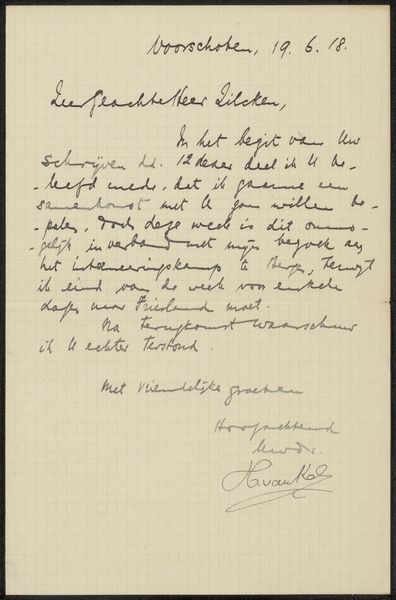 Voorschoten, 19.6.18.
Zeer Geachte Heer Zilcken,
In het bezit van Uw
schrijven dd. 12 dezer deel ik U be-
-leefd mede, dat ik gaarne een
samenkomst met U zou willen be-
palen, doch deze week is dit onmo-
gelijk in verband met mijn bezoek aan
het interneeringskamp te Bergen, terwijl
ik eind van de week voor enkele
dagen naar Friesland moet.
Na terugkomst waarschuw
ik U echter terstond.
Met vriendelijke groeten
Hoogachtend
Uwdr.
H. van Kol